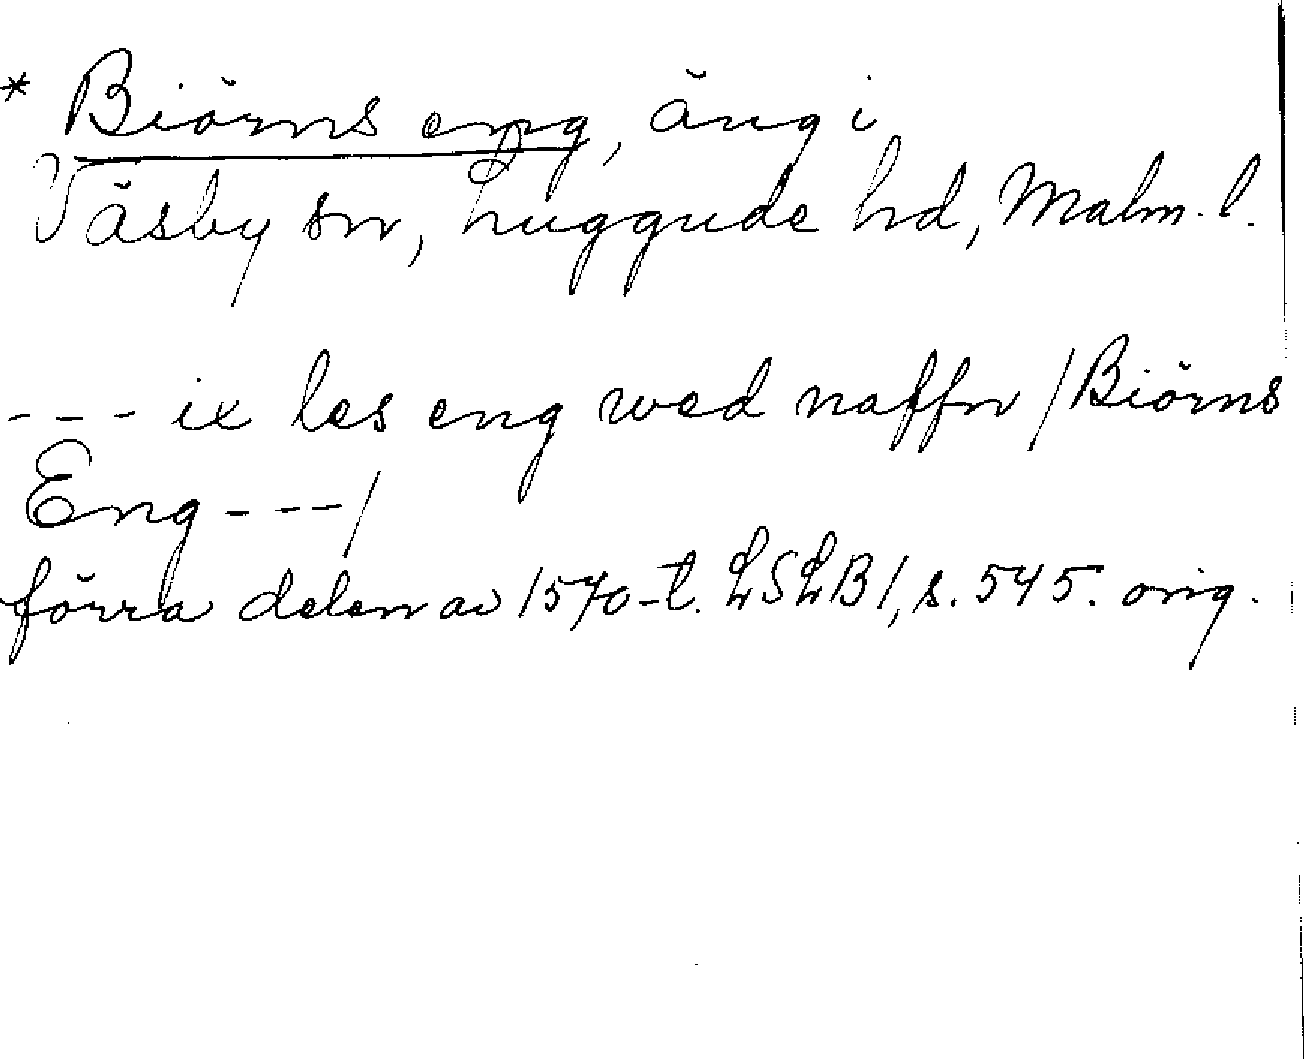 * Biörns eng, äng i
Väsby sn, Luggude hd, Malm. l.
--- ix les eng wed naffn / Biörns
Eng --- /
förra delen av 1570-t. LSLB 1, s. 545. orig.